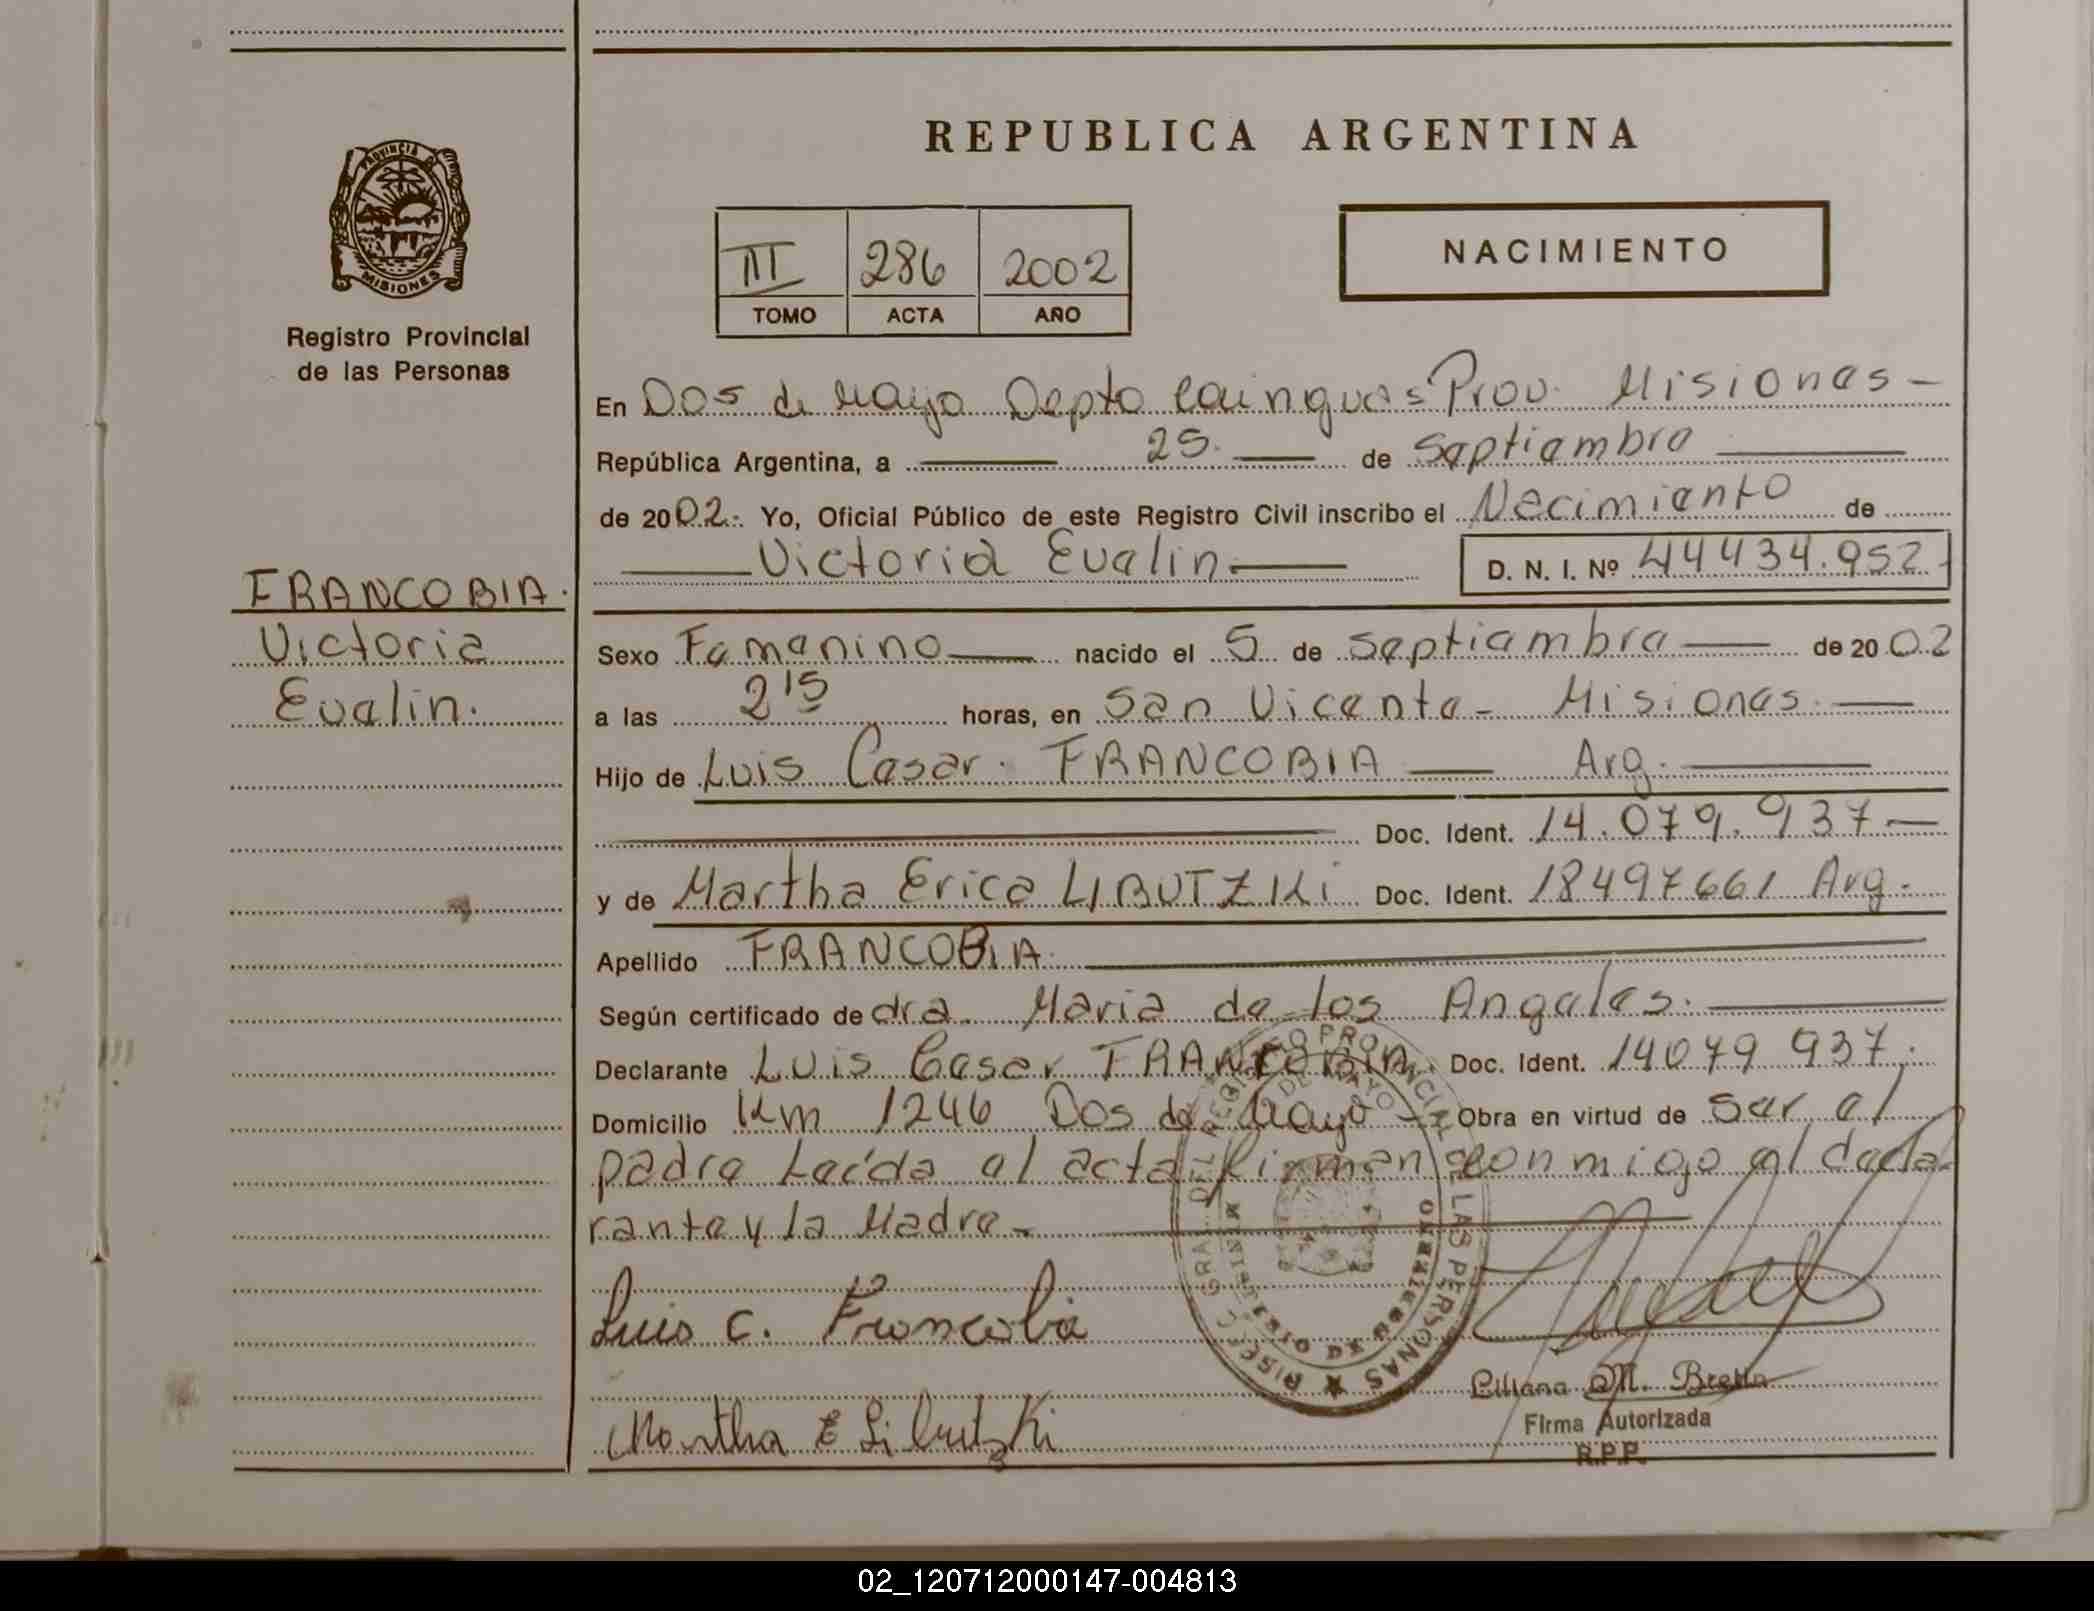 REPUBLICA ARGENTINA
PROVINCIA D
MISIONES
Registro Provincial
de las Personas
III 286 2002
TOMO ACTA AÑO
NACIMIENTO
En Dos de Mayo Depto Cainguas Prov. Misiones -
República Argentina, a 25. de Septiembre
de 2002.- Yo, Oficial Público de este Registro Civil inscribo el Nacimiento de
Victoria Evelin D. N. I. Nº 44434.952
FRANCOBIA.
Victoria
Evelin.
Sexo Femenino nacido el 5 de Septiembre de 2002
a las 2 15 horas, en San Vicente - Misiones.
Hijo de Luis Cesar. FRANCOBIA Arg.
Doc. Ident. 14.079.937-
y de Martha Erica LIBUTZKi Doc. Ident. 18497661 Arg.
Apellido FRANCOBIA.
Según certificado de dra. Maria de los Angeles.
Declarante Luis Cesar FRANCOBIA. Doc. Ident. 14079 937.
Domicilio Km 1246 Dos de Mayo - Obra en virtud de Ser el
padre Leída el acta firman conmigo el decla-
rante y la Madre.-
Luis C. Francobia
Martha E Libutzki
Liliana M.
Firma Autorizada
R.P.P.
02_120712000147-004813